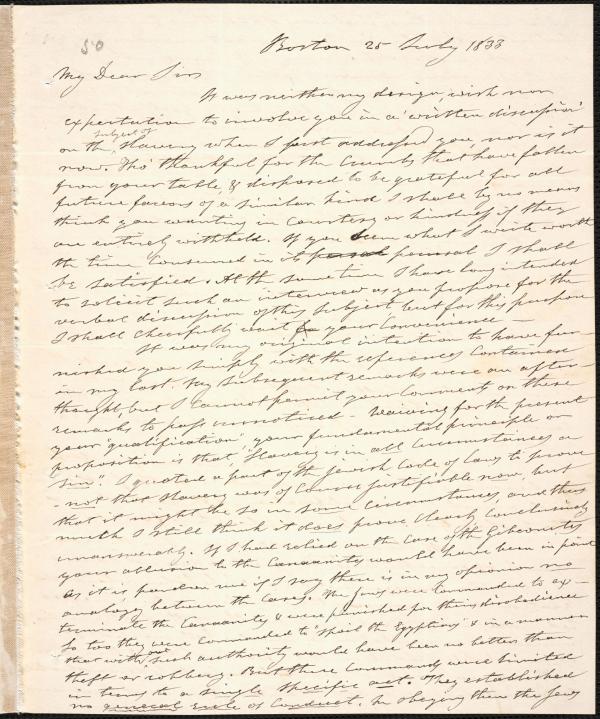 50
Boston 25 July 1833
My Dear Sir
It was neither my design, wish nor
expectation to involve you in a "written discussion"
on the subject of Slavery when I first addressed you, nor is it
now. Tho' thankful for the crumbs that have fallen
from your table, & disposed to be grateful for all
future favors of a similar kind I shall by no means
think you wanting in courtesy or kindness if they
are entirely withheld. If you deem what I write worth
the time consumed in its perusal perusal I shall
be satisfied. At the same time I have long intended
to solicit such an interview as you propose for the
verbal discussion of this subject, but for this purpose
I shall cheerfully wait your convenience —
It was my original intention to have fur-
nished you simply with the references contained
in my last. My subsequent remarks were an after-
thought, but I cannot permit your comment on these
remarks to pass unnoticed - waiving for the present
your "qualification", your fundamental principle or
proposition is that, "Slavery is in all circumstances a
sin". I quoted a part of the Jewish Code of Laws to prove
- not that Slavery was of course justifiable now, but
that it might be so in some circumstances, and thus
much I still think it does prove, clearly conclusively
unanswerably. If I had relied on the case of the Gibeonites
your allusion to the Canaanites would have been in point
As it is pardon me if I say there is in my opinion no
analogy between the cases. The Jews were commanded to ex-
terminate the Canaanites & were punished for their disobedience
So too they were commanded to "spoil the Egyptians" & in a manner
that without such authority would have been no better than
theft or robbery. But these commands were limited
in terms to a single specific act. They established
no general rule of conduct. In obeying them the Jews